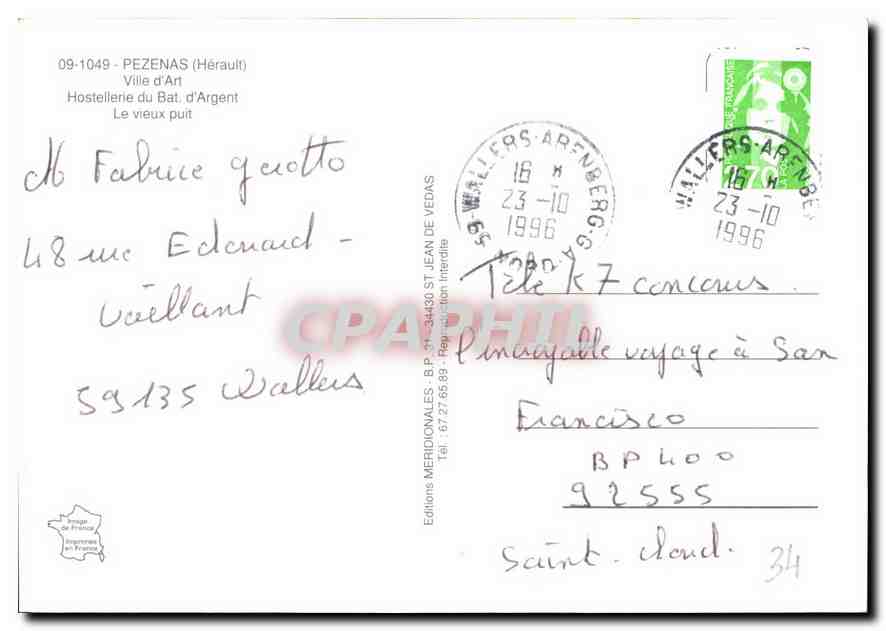 09-1049 - PEZENAS (Hérault)
Ville d'Art
Hostellerie du Bat. d'Argent
Le vieux puit
M Fabrice gerotto
48 rue Edouard -
Vaillant
59135 Wallers
Image
de France
Imprimée
en France
Editions MERIDIONALES - B.P. 31 - 34430 ST JEAN DE VEDAS
Tél. : 67.27.65.89 - Reproduction Interdite
CPAPHIL
59 WALLERS-ARENBERG-GA
NORD
16 H
23-10
1996
WALLERS-ARENBE
16 H
23-10
1996
QUE FRANÇAISE
2,70
LA POSTE
Télé K7 concours
l'incroyable voyage à San
Francisco
BP 400
92555
Saint-cloud.
34